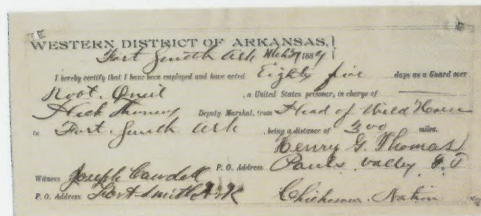 WESTERN DISTRICT OF ARKANSAS,
Fort Smith Ark 1889
I hereby certify that I have been employed and have acted Eighty five days as a Guard over
Robt. , a United States prisoner, in charge of
Heck Thomas Deputy Marshal, from Head of Wild Horse
to Fort Smith Ark , being a distance of 200 miles.
Henry G. Thomas
Witness Joseph P. O. Address Pauls Valley I. T
P. O. Address Fort Smith Ark Chickasaw Nation